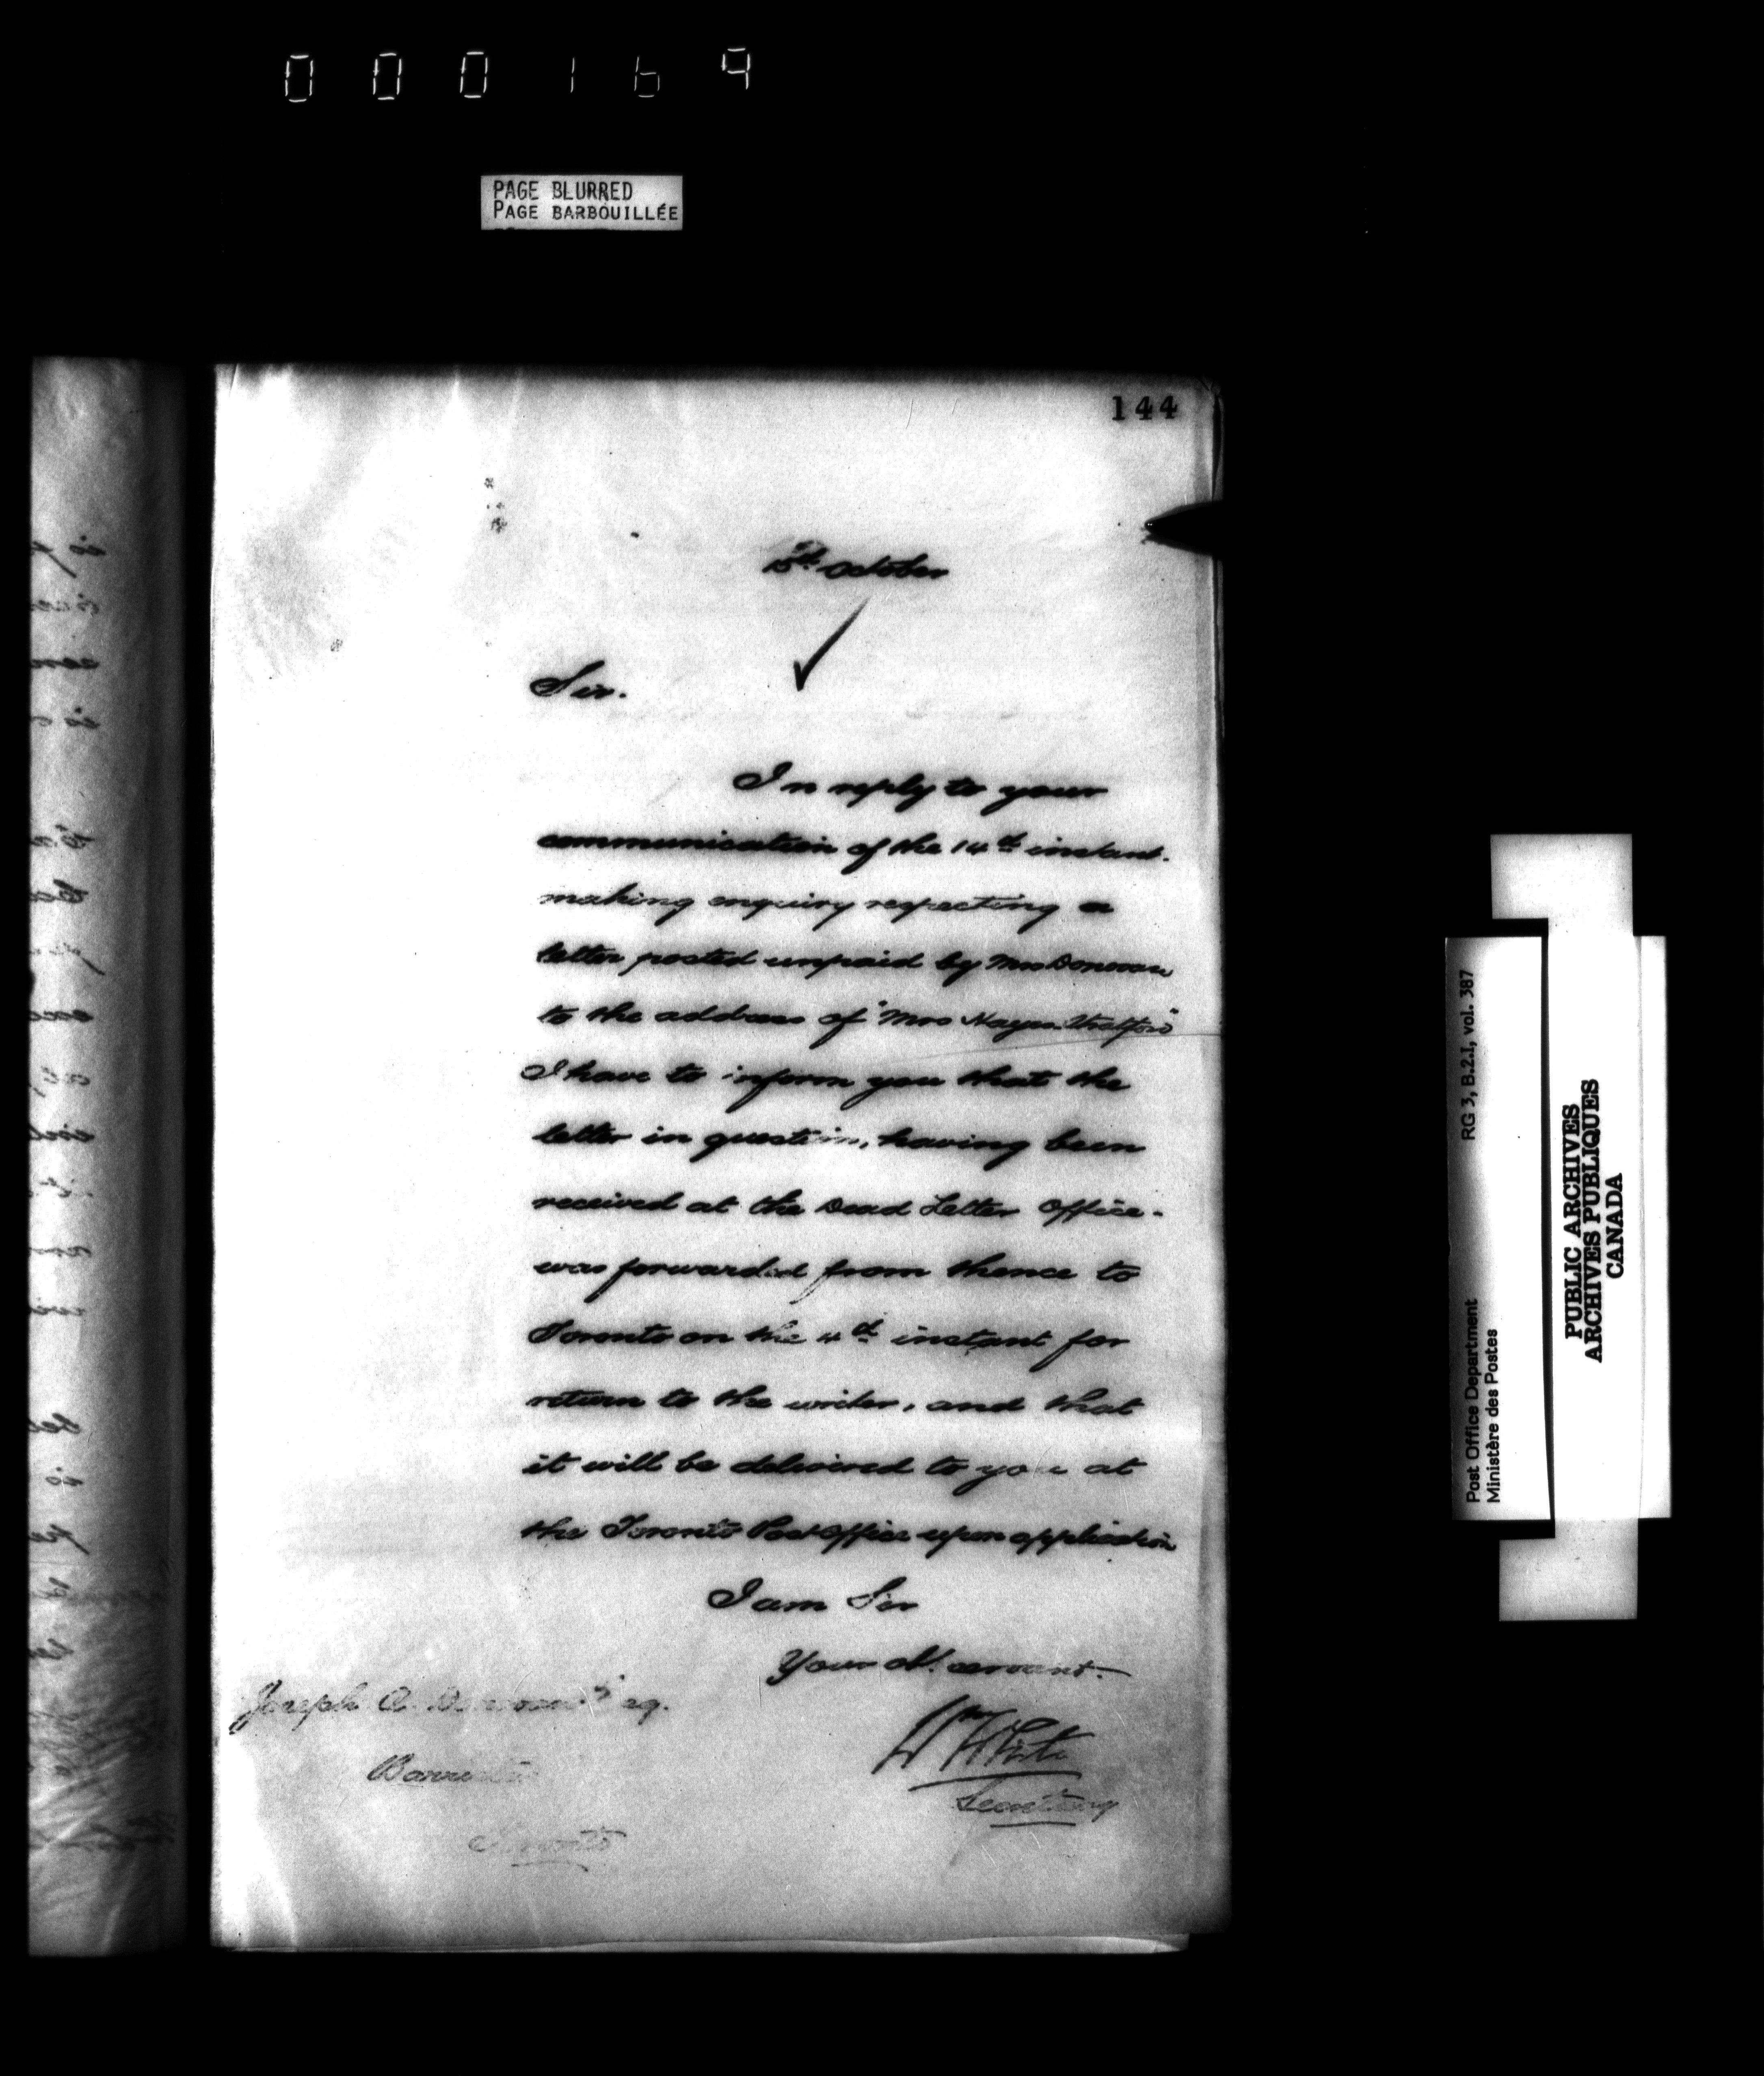 000169
PAGE BLURRED
PAGE BARBOUILLÉE
144
15th October
Sir.
In reply to your
communication of the 14th instant.
making enquiry respecting a
letter posted unpaid by Mrs Donovan
to the address of "Mrs Hayes Stratford"
I have to inform you that the
letter in question, having been
received at the Dead Letter Office.
was forwarded from thence to
Toronto on the 4th instant for
return to the writer, and that
it will be delivered to you at
the Toronto Post Office upon application
I am Sir
Your ob. servant.
Wm White
Secretary
Joseph A. Donovan Esq.
Barrister
Toronto
RG 3, B.2.I, vol. 387
Post Office Department
Ministère des Postes
PUBLIC ARCHIVES
ARCHIVES PUBLIQUES
CANADA